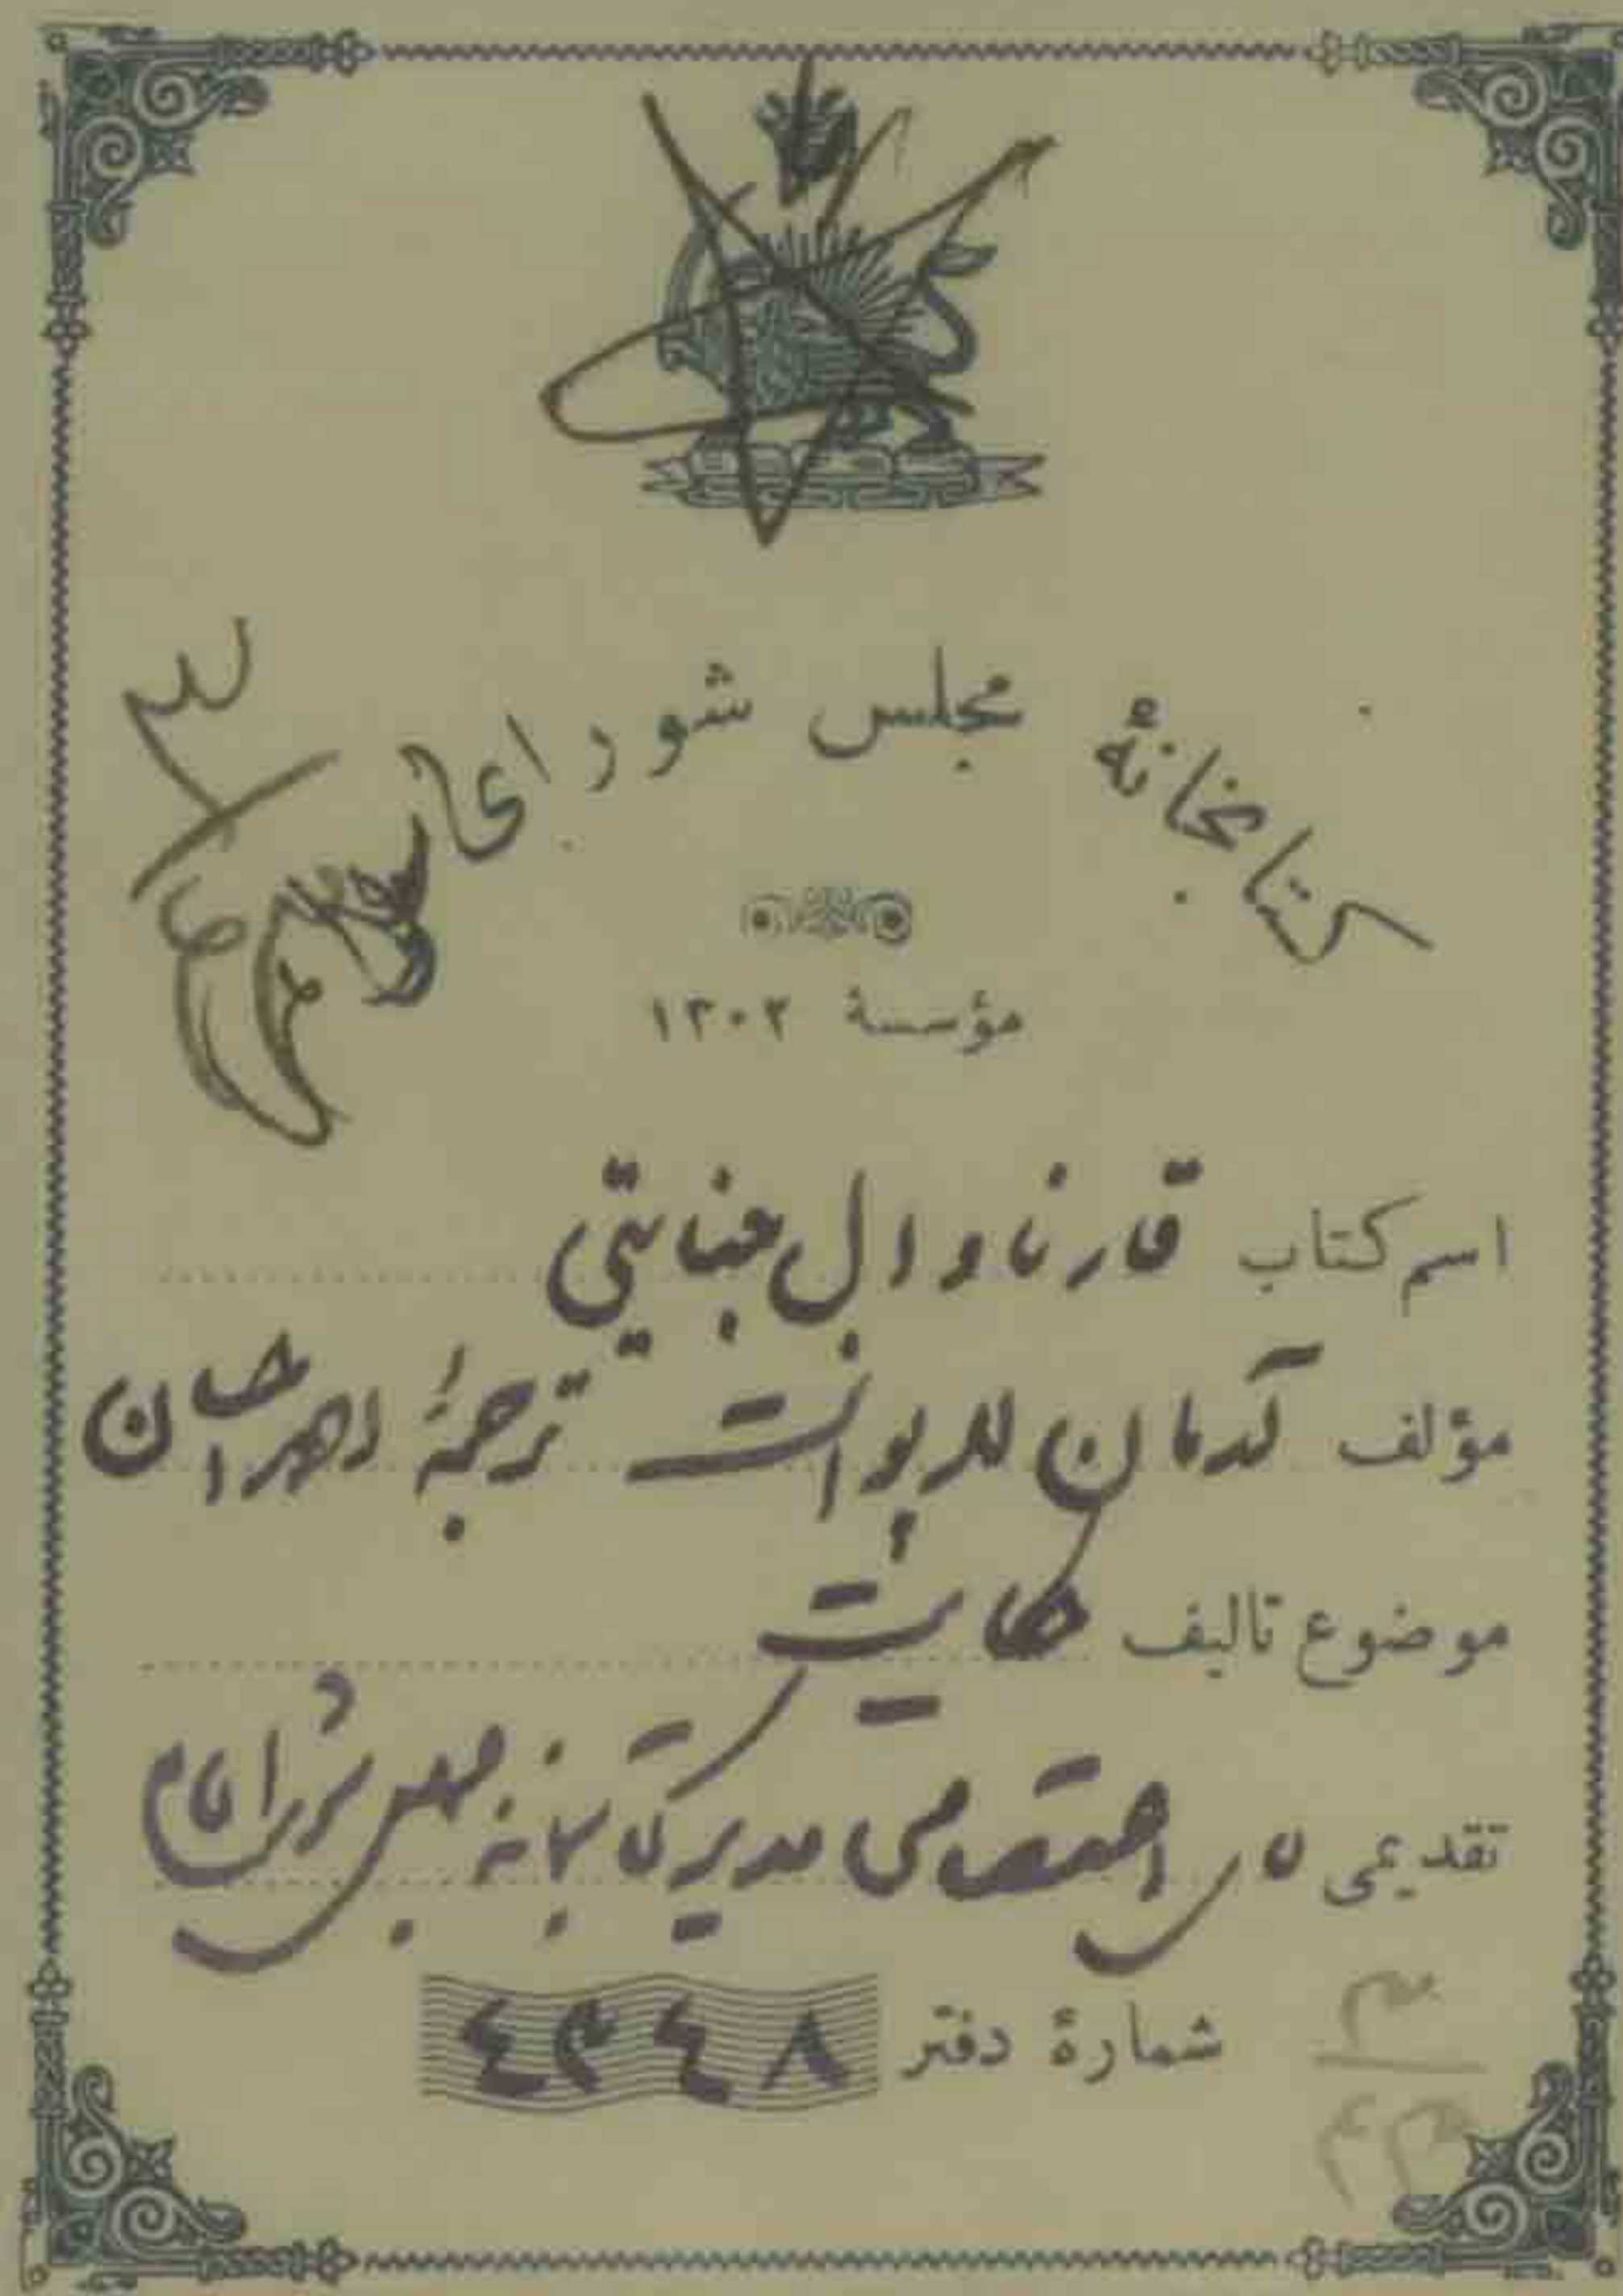 کتابخانهٔ مجلس شورای
مؤسسهٔ ۱۳۰۲
اسم کتاب قارناوال جنایتی
مؤلف آدمان لادپوانت ترجمهٔ احسان
موضوع تالیف حکایت
تقدیمی اعتصامی مدیر کتابخانه مجلس شورای
شمارهٔ دفتر ٤٣٤٨
۳
۴۳